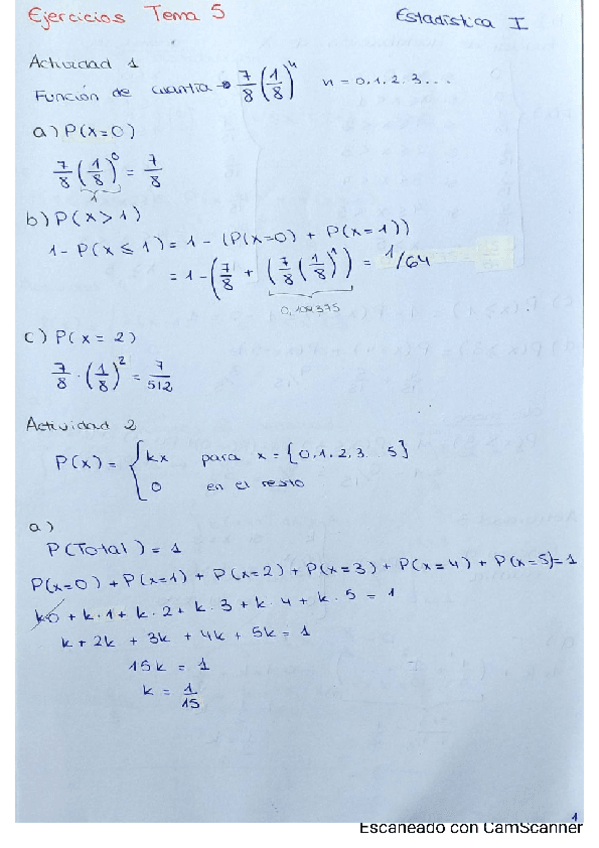 Ejercicios Tema 5
Estadística I
Actividad 1
Función de cuantía → 7/8 (1/8)^n n = 0.1.2.3...
a) P(x=0)
7/8 (1/8)^0 = 7/8
1
b) P(x>1)
1 - P(x ≤ 1) = 1 - (P(x=0) + P(x=1))
= 1 - (7/8 + (7/8 (1/8)^1)) = 1/64
0,109375
c) P(x = 2)
7/8 · (1/8)^2 = 7/512
Actividad 2
P(x) = { kx para x = {0.1.2.3...5}
0 en el resto
a)
P(Total) = 1
P(x=0) + P(x=1) + P(x=2) + P(x=3) + P(x=4) + P(x=5) = 1
k0 + k·1 + k·2 + k·3 + k·4 + k·5 = 1
k + 2k + 3k + 4k + 5k = 1
15k = 1
k = 1/15
1
Escaneado con CamScanner